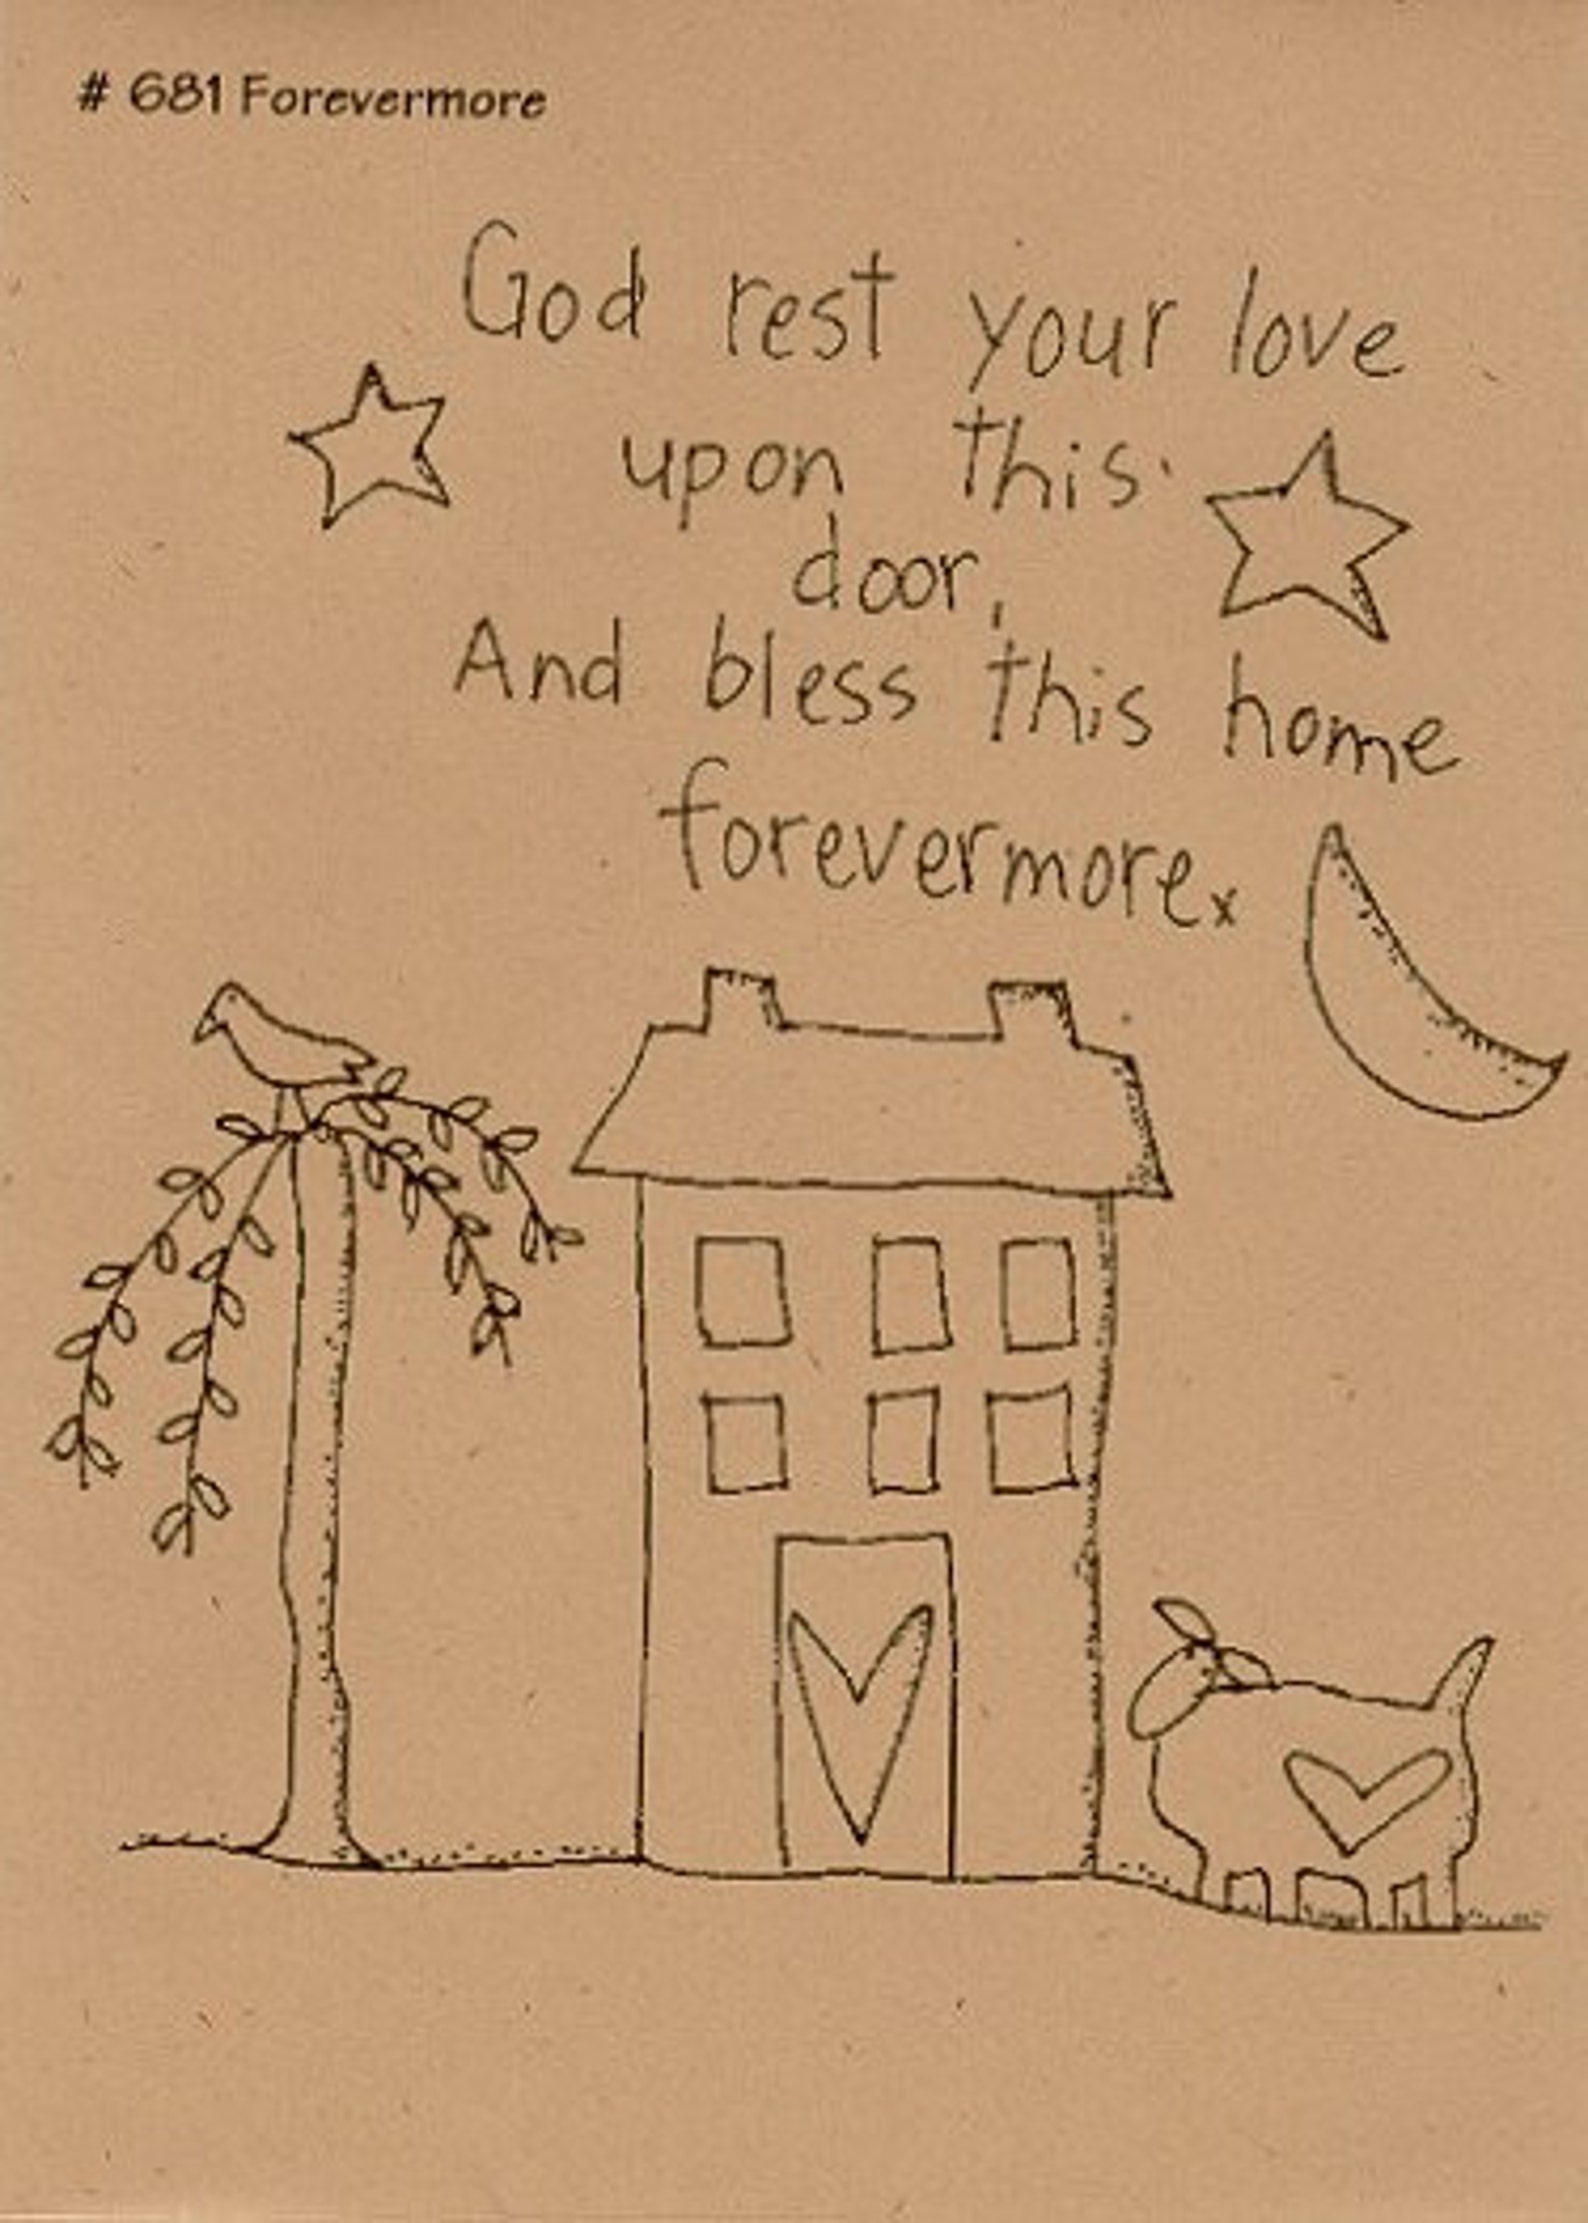 # 681 Forevermore
God rest your love
upon this
door,
And bless this home
forevermore.x